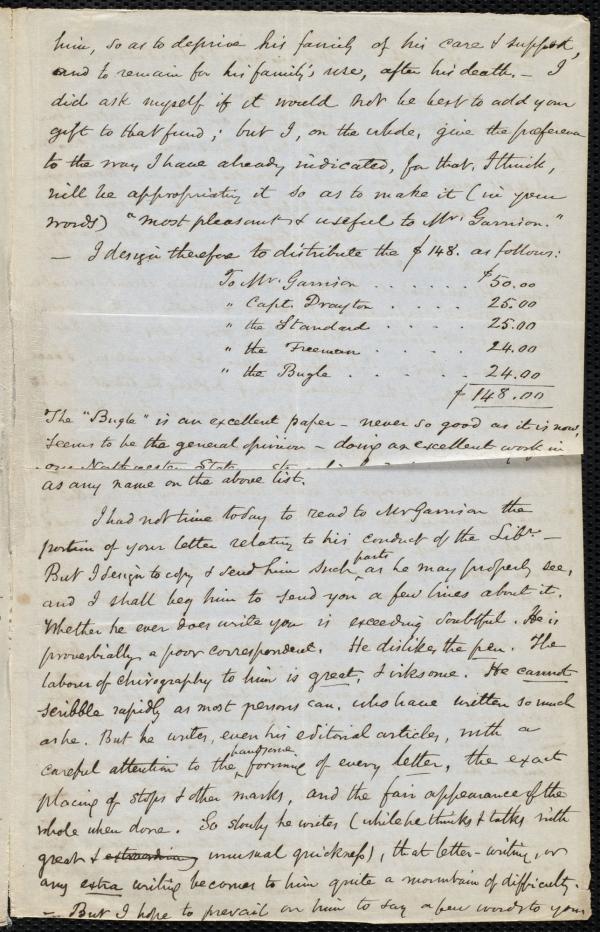 him, so as to deprive his family of his care & support,
and to remain for his family's use, after his death. – I
did ask myself if it would not be best to add your
gift to that fund; but I, on the whole, give the preference
to the way I have already indicated, for that, I think,
will be appropriating it so as to make it (in your
words) "most pleasant & useful to Mr. Garrison."
– I design therefore to distribute the $148. as follows:
To Mr. Garrison . . . $50.00
" Capt. Drayton . . . . . 25.00
" the Standard . . . . . 25.00
" the Freeman . . . . . 24.00
" the Bugle . . . . . . 24.00
$148.00
The "Bugle" is an excellent paper – never so good as it is now,
seems to be the general opinion – doing an excellent work in
our North western States
as any name on the above list.
I had not time today to read to Mr Garrison the
portion of your letter relating to his conduct of the Libr. –
But I design to copy & send him such parts as he may properly see,
and I shall beg him to send you a few lines about it.
Whether he ever does write you is exceeding doubtful. He is
proverbially a poor correspondent. He dislikes the pen. The
labour of chirography to him is great, & irksome. He cannot
scribble rapidly as most persons can, who have written so much
as he. But he writes, even his editorial articles, with a
careful attention to the handsome forming of every letter, the exact
placing of stops & other marks, and the fair appearance of the
whole when done. So slowly he writes (while he thinks & talks with
great & unusual quickness), that letter-writing, or
any extra writing becomes to him quite a mountain of difficulty.
– But I hope to prevail on him to say a few words to you